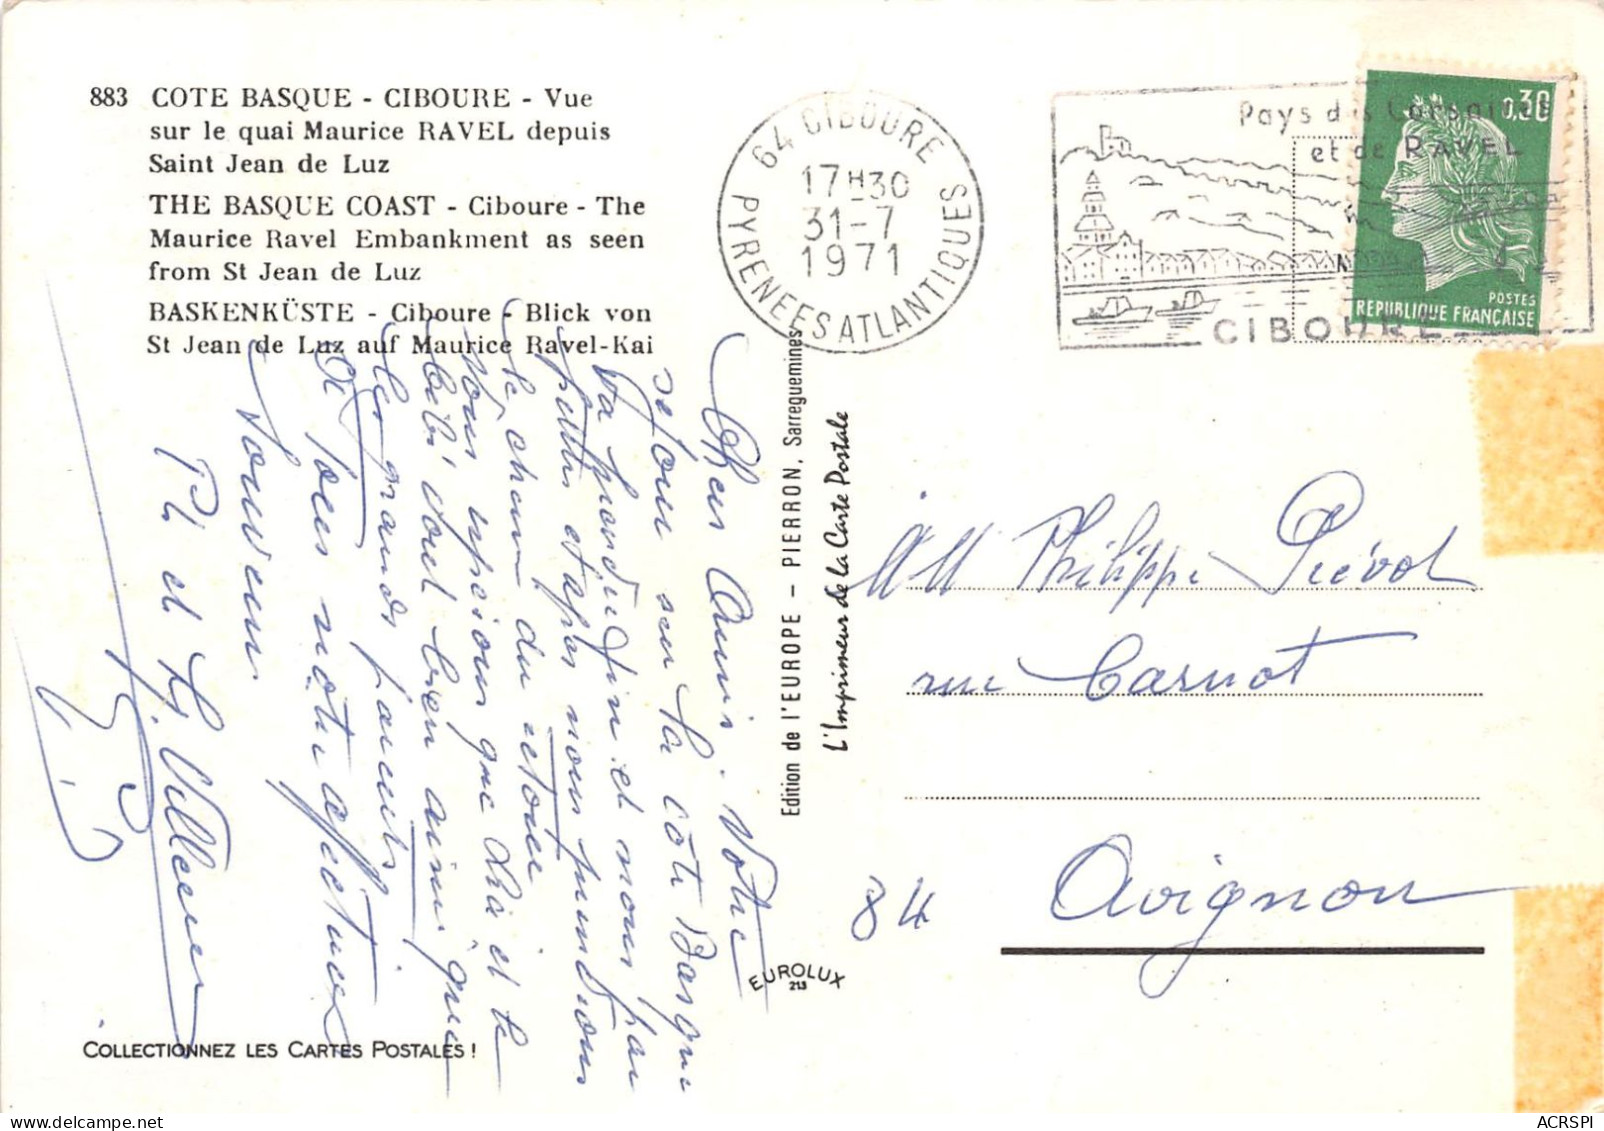 883 COTE BASQUE - CIBOURE - Vue
sur le quai Maurice RAVEL depuis
Saint Jean de Luz
THE BASQUE COAST - Ciboure - The
Maurice Ravel Embankment as seen
from St Jean de Luz
BASKENKÜSTE - Ciboure - Blick von
St Jean de Luz auf Maurice Ravel-Kai
Chers Amis. Votre
séjour sur la côte Basque
va prendre fin et nous par
petites étapes nous prendrons
le chemin du retour
Nous espérons que Léa et le
bébé vont bien ainsi que
les grands parents
De tous notre affectueux
Souvenir
P. et G. Villener
COLLECTIONNEZ LES CARTES POSTALES !
Edition de l'EUROPE - PIERRON, Sarreguemines
L'Imprimeur de la Carte Postale
EUROLUX
213
64 CIBOURE
17H30
31-7
1971
PYRENEES ATLANTIQUES
Pays des Corsaires
et de RAVEL
CIBOURE
0,30
POSTES
REPUBLIQUE FRANÇAISE
MM Philippe Prévot
rue Carnot
84 Avignon
ACRSPI